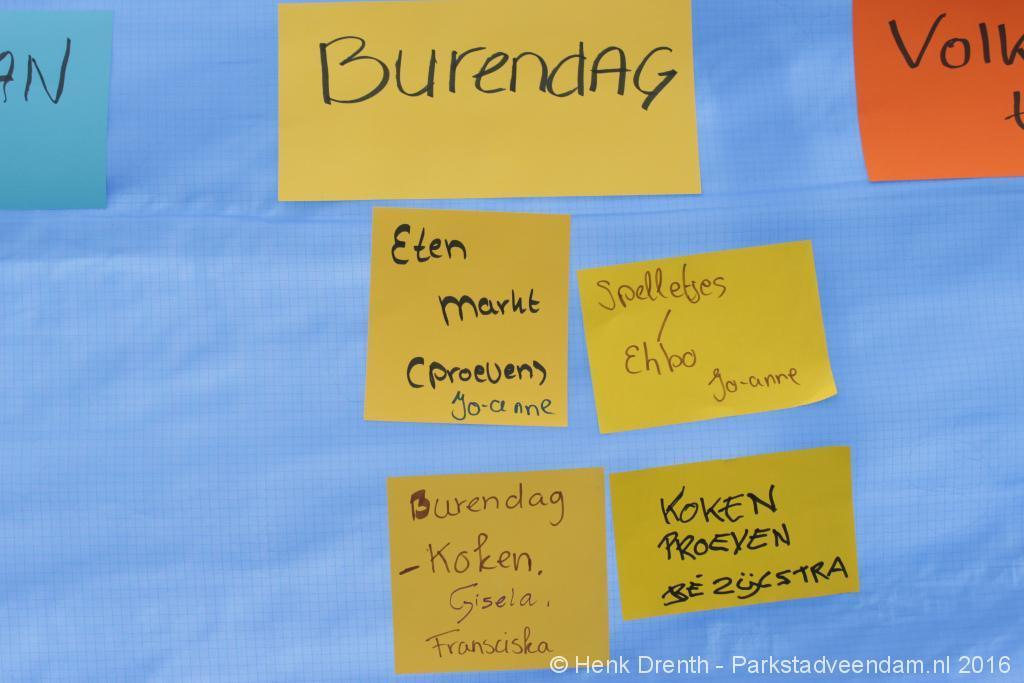 AN
BurendAG
Volk
t
Eten
markt
(proeven)
Jo-anne
Spelletjes
/
Ehbo
Jo-anne
Burendag
- Koken.
Gisela.
Fransciska
KOKEN
PROEVEN
BÉ ZIJLSTRA
© Henk Drenth - Parkstadveendam.nl 2016